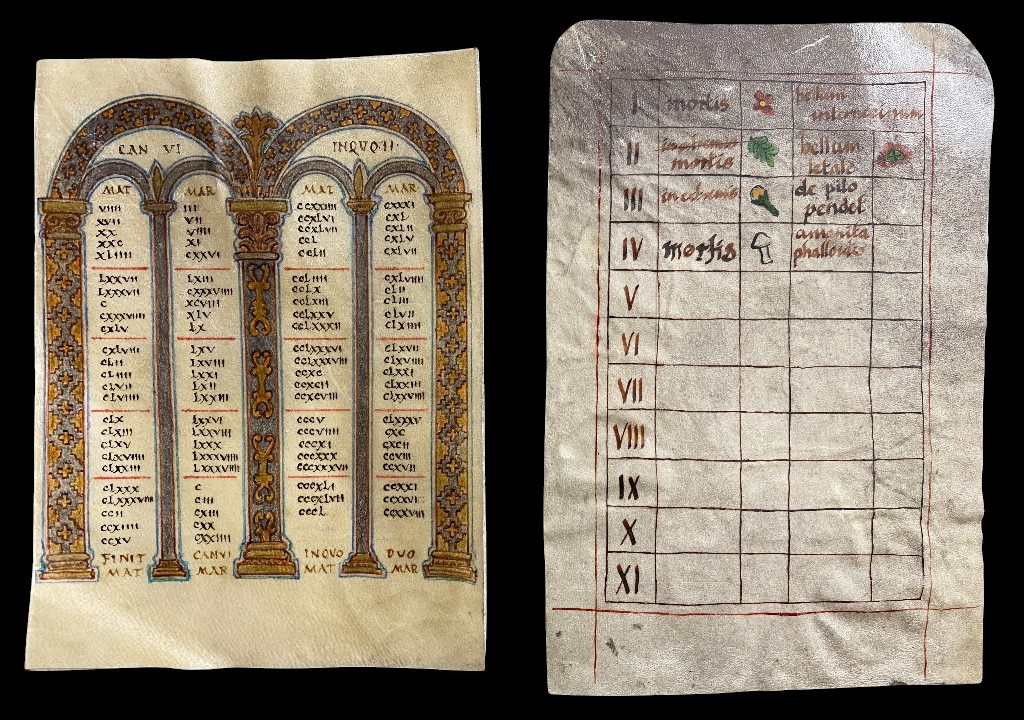 CAN VI INQVO II
MAT MAR MAT MAR
VIIII III CCXXIIII CXXXI
XVII VII CCXLVI CXL
XX VIIII CCXLVII CXL
XXC XI CCL CXLV
XLIIII CXXVI CCLII CXLVII
LXXVII LXIII CCLIIII CXLVIII
LXXXVII CXXXVIIII CCLX CLI
C XCVIII CCLXIII CLIII
CXXXVIIII XLV CCLXXV CLVII
CXLV LX CCLXXXII CLXIIII
CXLVIII LXV CCLXXXVI CLXVII
CLII LXVIII CCLXXXVIII CLXVIII
CLIIII LXXI CCXC CLXXI
CLVII LXXII CCXCII CLXXIII
CLVIIII LXXIII CCXCVIII CLXXVIII
CLX LXXVI CCCV CLXXXV
CLXIII LXXVIII CCCVIIII CXC
CLXV LXXX CCCXI CXCII
CLXVIIII LXXXVIIII CCCXXX CCVIII
CLXXIII LXXXVIIII CCCXXXVII CCXVII
CLXXX C CCCXLI CCXXI
CLXXXVIIII CIII CCCXLVII CCXXVI
CCII CVIII CCCL CCXXVIII
CCXIIII CXX
CCXV CXXIIII
FINIT CANVI INQVO DVO
MAT MAR MAT MAR
I mortis bellum
internecinum
II mortis bellum
letale
III incolumis de pilo
pendet
IV mortis amanita
phalloides
V
VI
VII
VIII
IX
X
XI